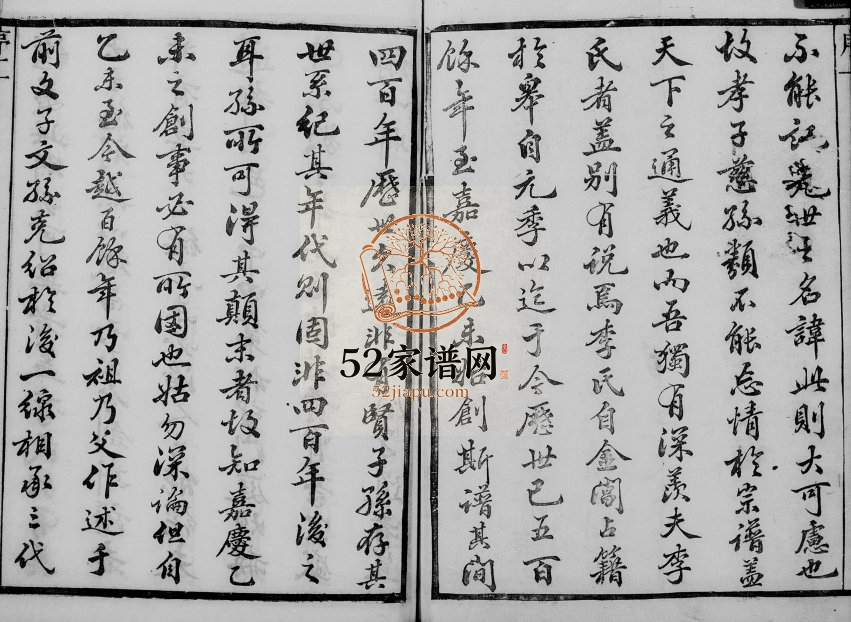 不能記幾世之名諱此則大可慮也
故孝子慈孫類不能忘情於宗譜蓋
天下之通義也而吾獨有深羨夫李
氏者蓋别有说焉李氏自金閶占籍
於皋自元季以迄于今歷世已五百
餘年至嘉慶乙未始創斯譜其间
四百年歷世失 非有賢子孫存其
世系紀其年代则固非四百年後之
耳孫所可得其顛末者故知嘉慶乙
未之創事必有所因也姑勿深論但自
乙未至今越百餘年乃祖乃父作述于
前文子文孫克绍於後一線相承三代
序一
序二
52家谱网
52jiapu.com